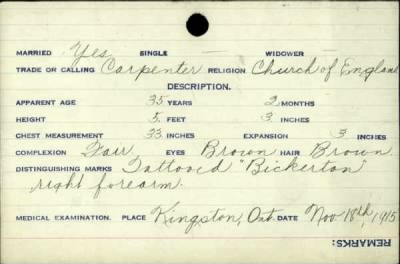 MARRIED Yes SINGLE — WIDOWER —
TRADE OR CALLING Carpenter RELIGION Church of England
DESCRIPTION.
APPARENT AGE 35 YEARS 2 MONTHS
HEIGHT 5 FEET 3 INCHES
CHEST MEASUREMENT 33 INCHES EXPANSION 3 INCHES
COMPLEXION Fair EYES Brown HAIR Brown
DISTINGUISHING MARKS Tattooed "Bickerton"
right forearm.
MEDICAL EXAMINATION. PLACE Kingston, Ont. DATE Nov 18th, 1915
REMARKS: